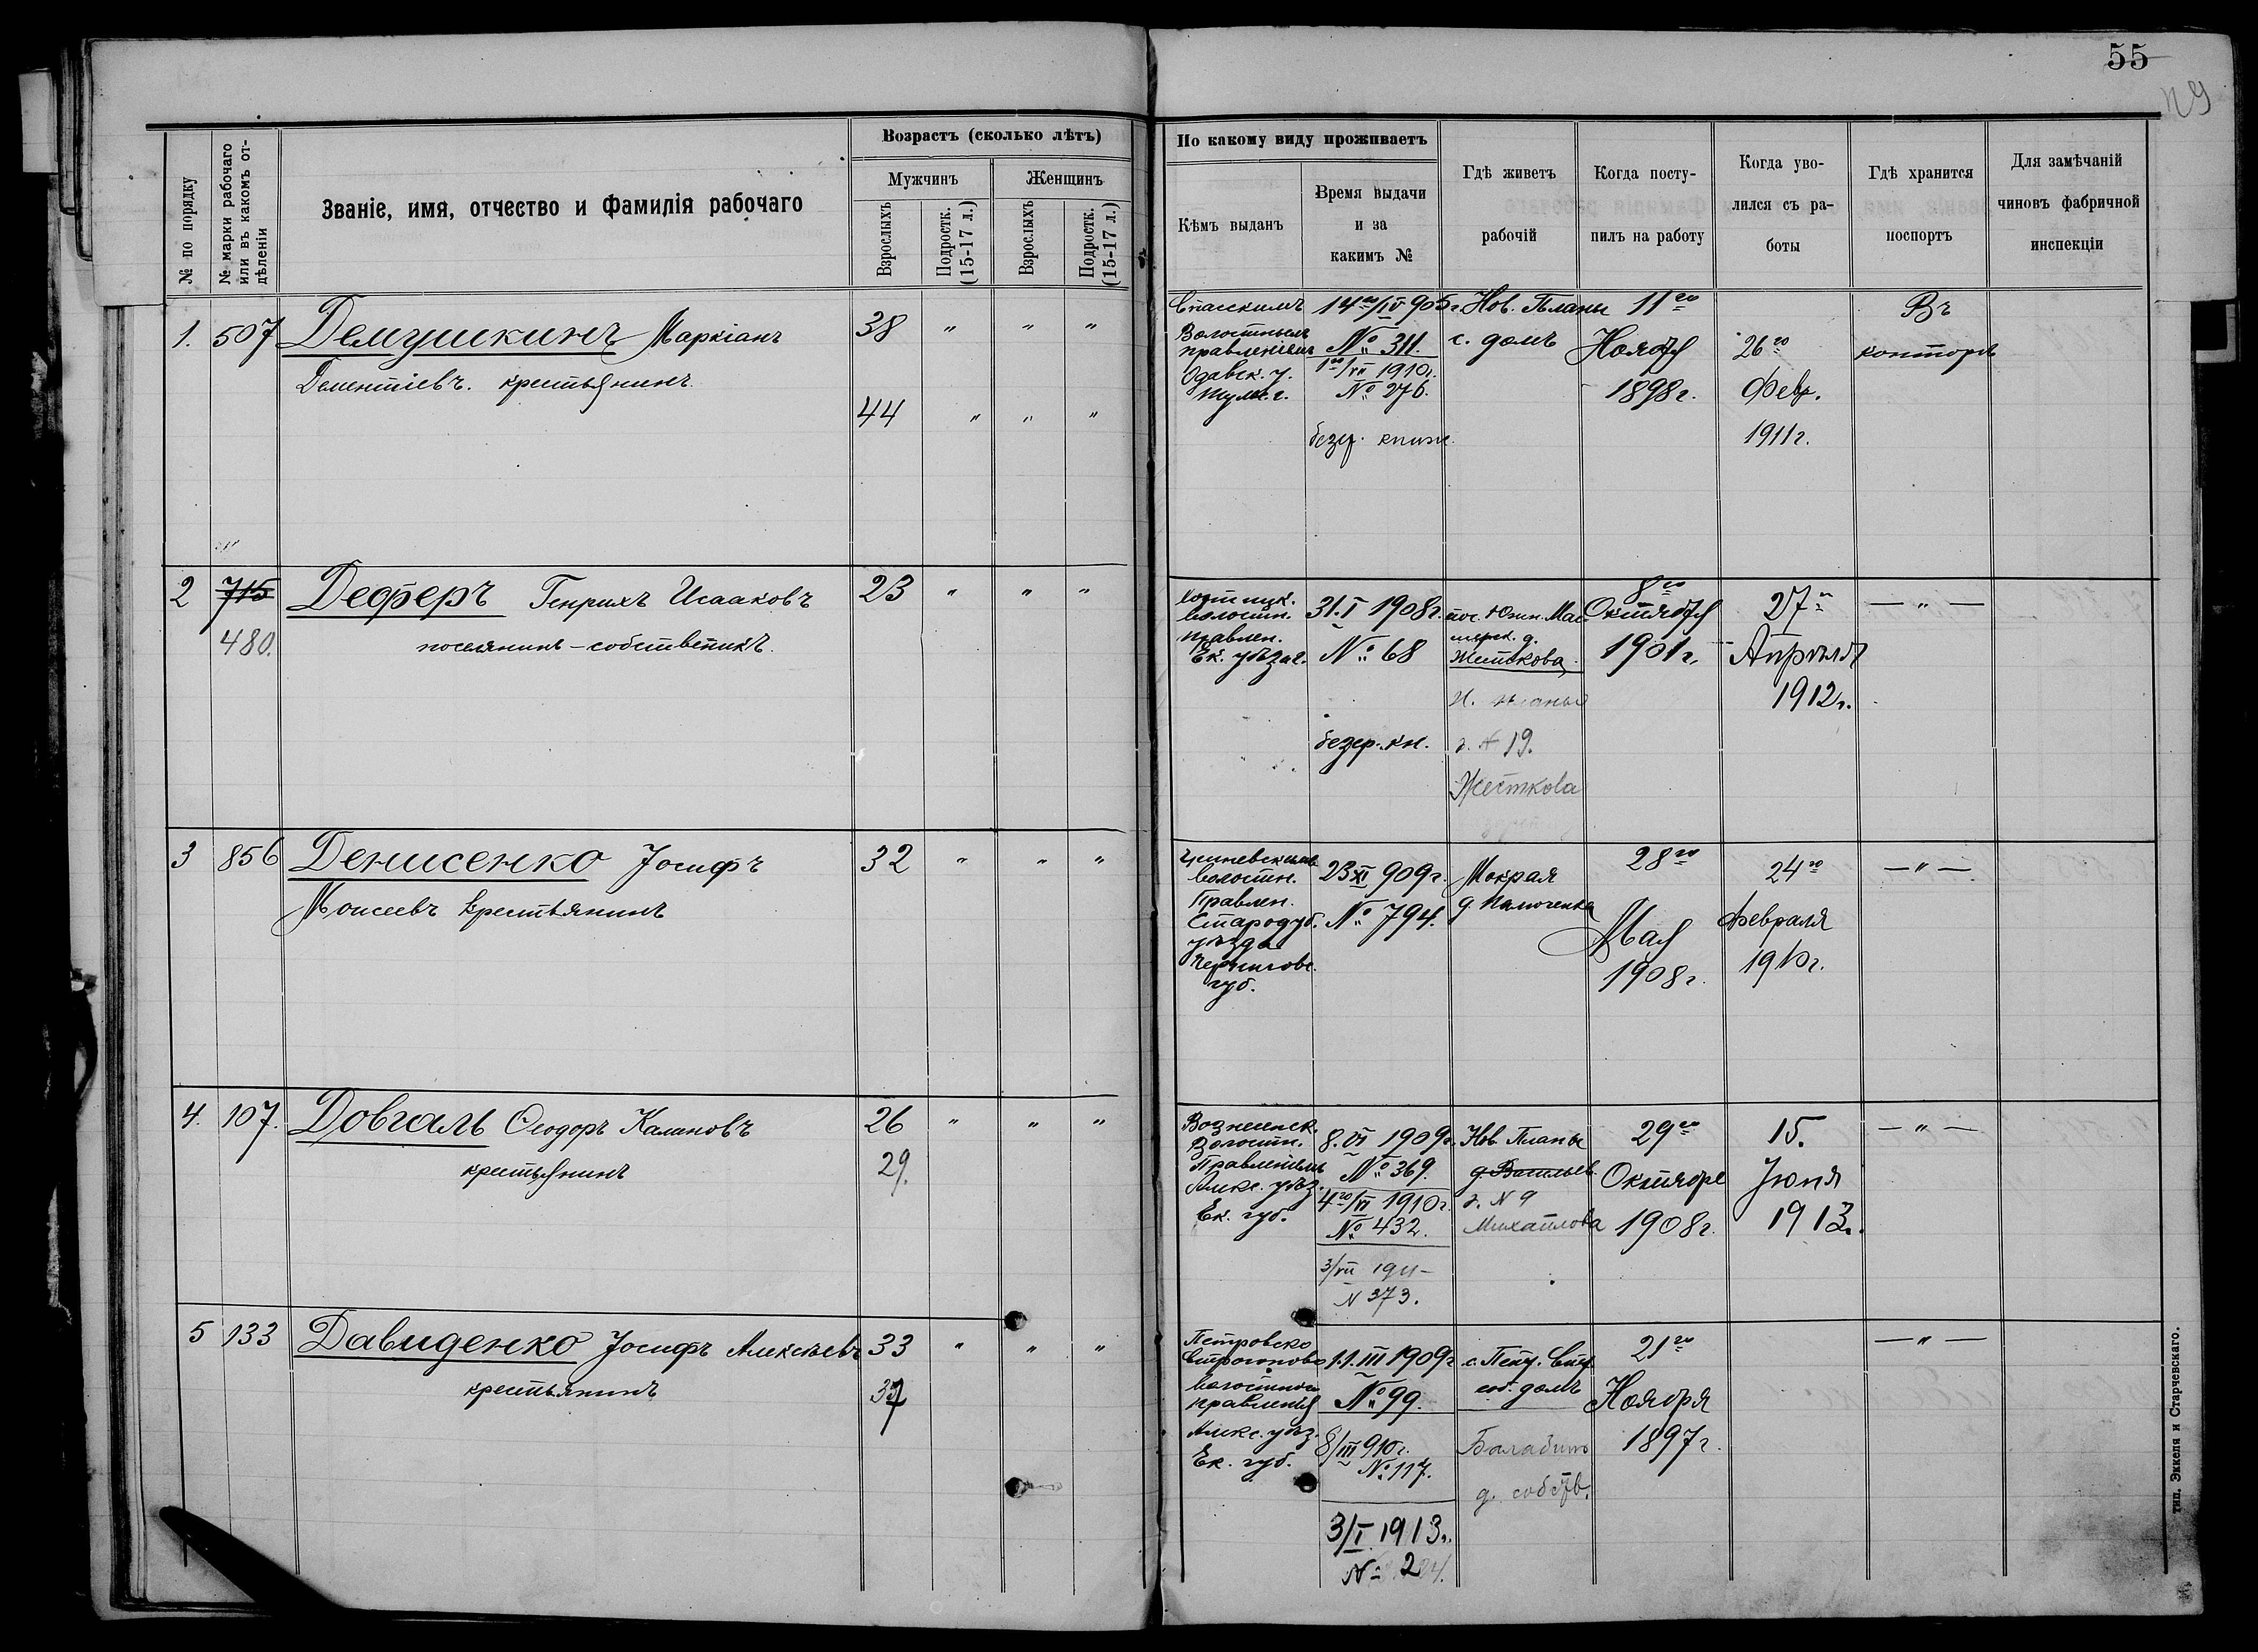 55
Возрастъ (сколько лѣтъ)
Мужчинъ
Женщинъ
№ по порядку
№ марки рабочаго
или въ какомъ от-
дѣленіи
Званіе, имя, отчество и Фамилія рабочаго
Взрослыхъ
Подростк.
(15-17 л.)
Взрослыхъ
Подростк.
(15-17 л.)
По какому виду проживаетъ
Кѣмъ выданъ
Время выдачи
и за
какимъ №
Гдѣ живетъ
рабочій
Когда посту-
пилъ на работу
Когда уво-
лился съ ра-
боты
Гдѣ хранится
поспортъ
Для замѣчаній
чиновъ фабричной
инспекціи
1. 507 Демушкинъ Маркіанъ 38 " " "
Дементіевъ. крестьянинъ.
44 " " "
Спасскимъ
Волостнымъ
правленіемъ
14го/IV 905г.
№ 311.
1го/VII 1910г.
№ 276.
безср. книж.
Нов. Планы
с. домъ
11го
Ноября
1898г.
26го
Февр.
1911г.
Въ
конторѣ
2 715 Деферъ Генрихъ Исааковъ 23 " " "
480. поселянинъ-собственикъ.
волостн.
Правлен.
Ек. уѣзд
31.I 1908г.
№ 68
безер. кн.
Жесткова
19.
Жесткова
8го
Октября
1901г.
27го
Апрѣля
1912г.
— " —
3 856 Денисенко Іосифъ 32 " " "
Моисеевъ крестьянинъ
волостн.
Правлен.
Стародуб.
уѣзда
Чернигов.
губ.
23 XI 909г.
№ 794.
Мокрая
28го
Мая
1908г.
24го
Февраля
1910г.
— " —
4. 107. Довгаль Ѳеодоръ Калиновъ 26 " " "
крестьянинъ 29.
Вознесенск.
Волостн.
Правленіемъ
Алекс. уѣз.
Ек. губ.
8.VI 1909г.
№ 369.
4го/VI 1910г.
№ 432.
3/VII 1911—
N 373.
Нов. Планы
д. Васильев.
д. N 9
Михайлова
29го
Октября
1908г.
15.
Іюня
1913г.
— " —
5 133 Давиденко Іосифъ Алексѣевъ 33 " " "
крестьянинъ 37
Петровско
волостного
правленія
Алекс. уѣз.
Ек. губ.
11.III 1909г
№ 99.
8/III 910г.
№ 117.
3/I 1913г.
№ 224.
соб. домъ
д. собств.
21го
Ноября
1897г.
— " —
тип. Эккеля и Старчевскаго.